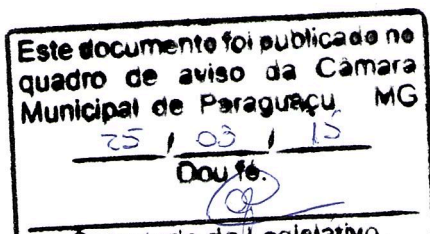 Este documento foi publicado no
quadro de aviso da Câmara
Municipal de Paraguaçu MG
25 / 03 / 15
Dou fé.
do Legislativo